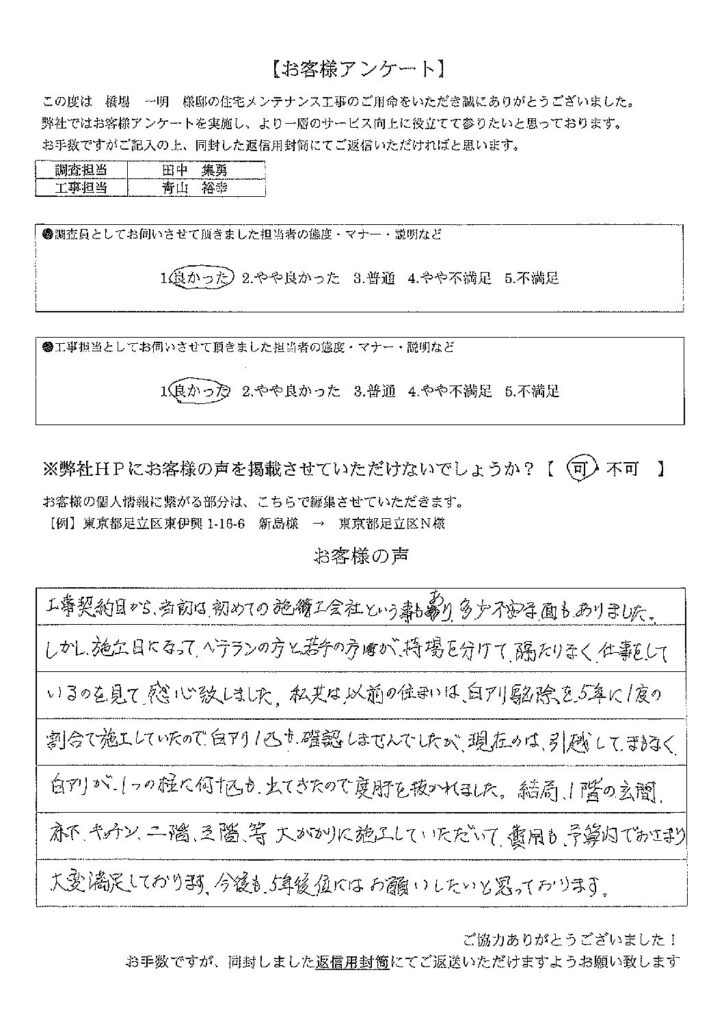 【お客様アンケート】
この度は 横場 一明 様邸の住宅メンテナンス工事のご用命をいただき誠にありがとうございました。
弊社ではお客様アンケートを実施し、より一層のサービス向上に役立てて参りたいと思っております。
お手数ですがご記入の上、同封した返信用封筒にてご返信いただければと思います。
調査担当 田中 集勇
工事担当 青山 裕幸
●調査員としてお伺いさせて頂きました担当者の態度・マナー・説明など
1.良かった 2.やや良かった 3.普通 4.やや不満足 5.不満足
●工事担当としてお伺いさせて頂きました担当者の態度・マナー・説明など
1.良かった 2.やや良かった 3.普通 4.やや不満足 5.不満足
※弊社HPにお客様の声を掲載させていただけないでしょうか？【 可・不可 】
お客様の個人情報に繋がる部分は、こちらで編集させていただきます。
【例】東京都足立区東伊興1-16-6 新島様 → 東京都足立区N様
お客様の声
工事契約日から、当初は、初めての施工会社という事もあり、多少不安な面もありました。
しかし、施工日になって、ベテランの方と若手の方が、持場を分けて、隔たりなく、仕事をして
いるのを見て、感心致しました。私共は、以前の住まいは、白アリ駆除を5年に1度の
割合で施工していたので、白アリ1匹も、確認しませんでしたが、現在のは、引越して、まもなく
白アリが、1つの柱に何十匹も、出てきたので度肝を抜かれました。結局、1階の玄関、
床下、キッチン、二階、三階、等 大がかりに施工していただいて、費用も、予算内でおさまり
大変満足しております。今後も、5年後位にはお願いしたいと思っております。
ご協力ありがとうございました！
お手数ですが、同封しました返信用封筒にてご返送いただけますようお願い致します